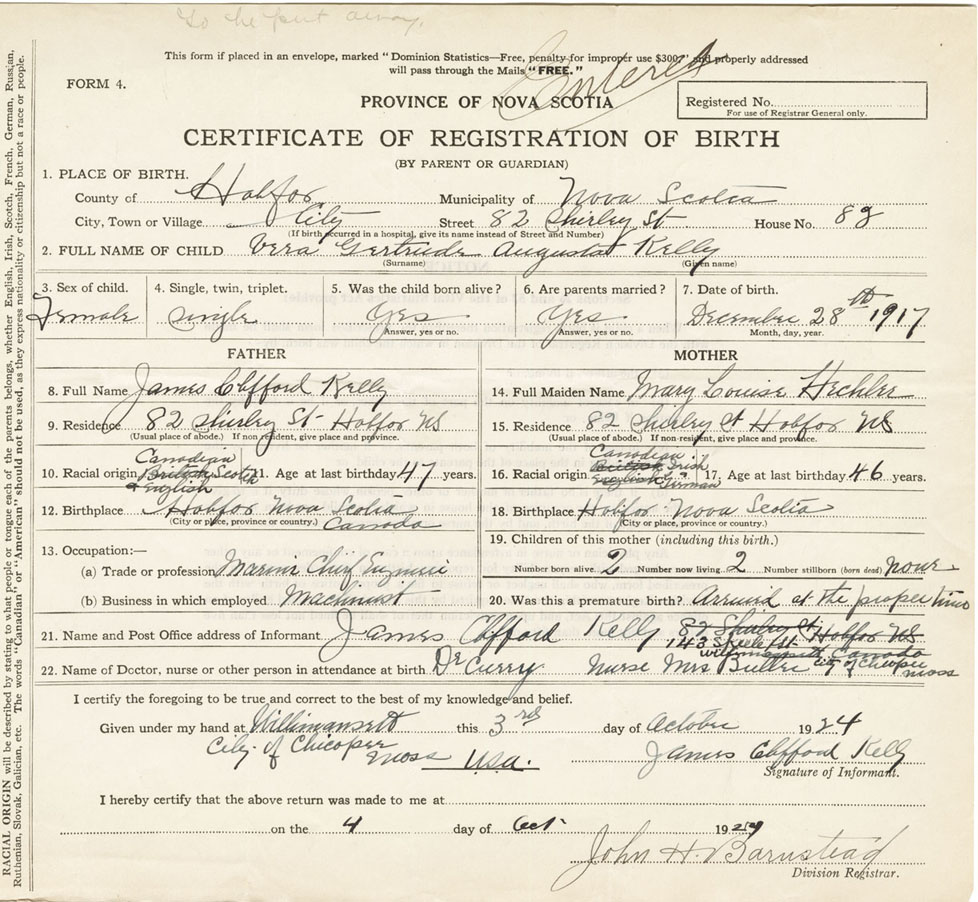 To be put away.
This form if placed in an envelope, marked "Dominion Statistics—Free, penalty for improper use $300," and properly addressed
will pass through the Mails "FREE."
Entered
FORM 4.
PROVINCE OF NOVA SCOTIA
Registered No.
For use of Registrar General only.
CERTIFICATE OF REGISTRATION OF BIRTH
(BY PARENT OR GUARDIAN)
1. PLACE OF BIRTH.
County of Halifax Municipality of Nova Scotia
City, Town or Village City Street 82 Shirley St House No. 82
(If birth occurred in a hospital, give its name instead of Street and Number)
2. FULL NAME OF CHILD Vera Gertrude Augusta Kelly
(Surname) (Given name)
3. Sex of child. 4. Single, twin, triplet. 5. Was the child born alive? 6. Are parents married? 7. Date of birth.
Female single Yes Yes December 28th 1917
Answer, yes or no. Answer, yes or no. Month, day, year.
FATHER MOTHER
8. Full Name James Clifford Kelly
9. Residence 82 Shirley St Halifax NS
(Usual place of abode.) If non resident, give place and province.
10. Racial origin Canadian British Scotch English 11. Age at last birthday 47 years.
12. Birthplace Halifax Nova Scotia
(City or place, province or country.) Canada
13. Occupation:—
(a) Trade or profession Marine Chief Engineer
(b) Business in which employed Machinist
14. Full Maiden Name Mary Louise Hechler
15. Residence 82 Shirley St Halifax NS
(Usual place of abode.) If non-resident, give place and province.
16. Racial origin Canadian British Irish English German 17. Age at last birthday 46 years.
18. Birthplace Halifax Nova Scotia
(City or place, province or country.)
19. Children of this mother (including this birth.)
Number born alive 2 Number now living 2 Number stillborn (born dead) none
20. Was this a premature birth? Arrived at the proper time
21. Name and Post Office address of Informant James Clifford Kelly 82 Shirley St Halifax NS
Willimansett Canada
22. Name of Doctor, nurse or other person in attendance at birth Dr Curry Nurse Mrs City of Chicopee Mass
I certify the foregoing to be true and correct to the best of my knowledge and belief.
Given under my hand at Willimansett this 3rd day of October 1924
City of Chicopee Mass USA.
James Clifford Kelly
Signature of Informant.
I hereby certify that the above return was made to me at
on the 4 day of Oct 1924
John H. Barnstead
Division Registrar.
RACIAL ORIGIN will be described by stating to what people or tongue each of the parents belongs, whether English, Irish, Scotch, French, German, Russian,
Ruthenian, Slovak, Galician, etc. The words "Canadian" or "American" should not be used, as they express nationality or citizenship but not a race or people.